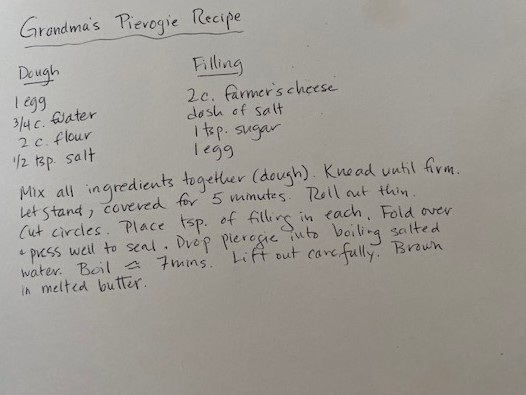 Grandma's Pierogie Recipe
Dough
1 egg
3/4 c. Water
2 c. flour
1/2 tsp. salt
Filling
2 c. farmer's cheese
dash of salt
1 tsp. sugar
1 egg
Mix all ingredients together (dough). Knead until firm.
Let stand, covered for 5 minutes. Roll out thin.
Cut circles. Place tsp. of filling in each. Fold over
+ press well to seal. Drop pierogie into boiling salted
water. Boil ≈ 7 mins. Lift out carefully. Brown
in melted butter.